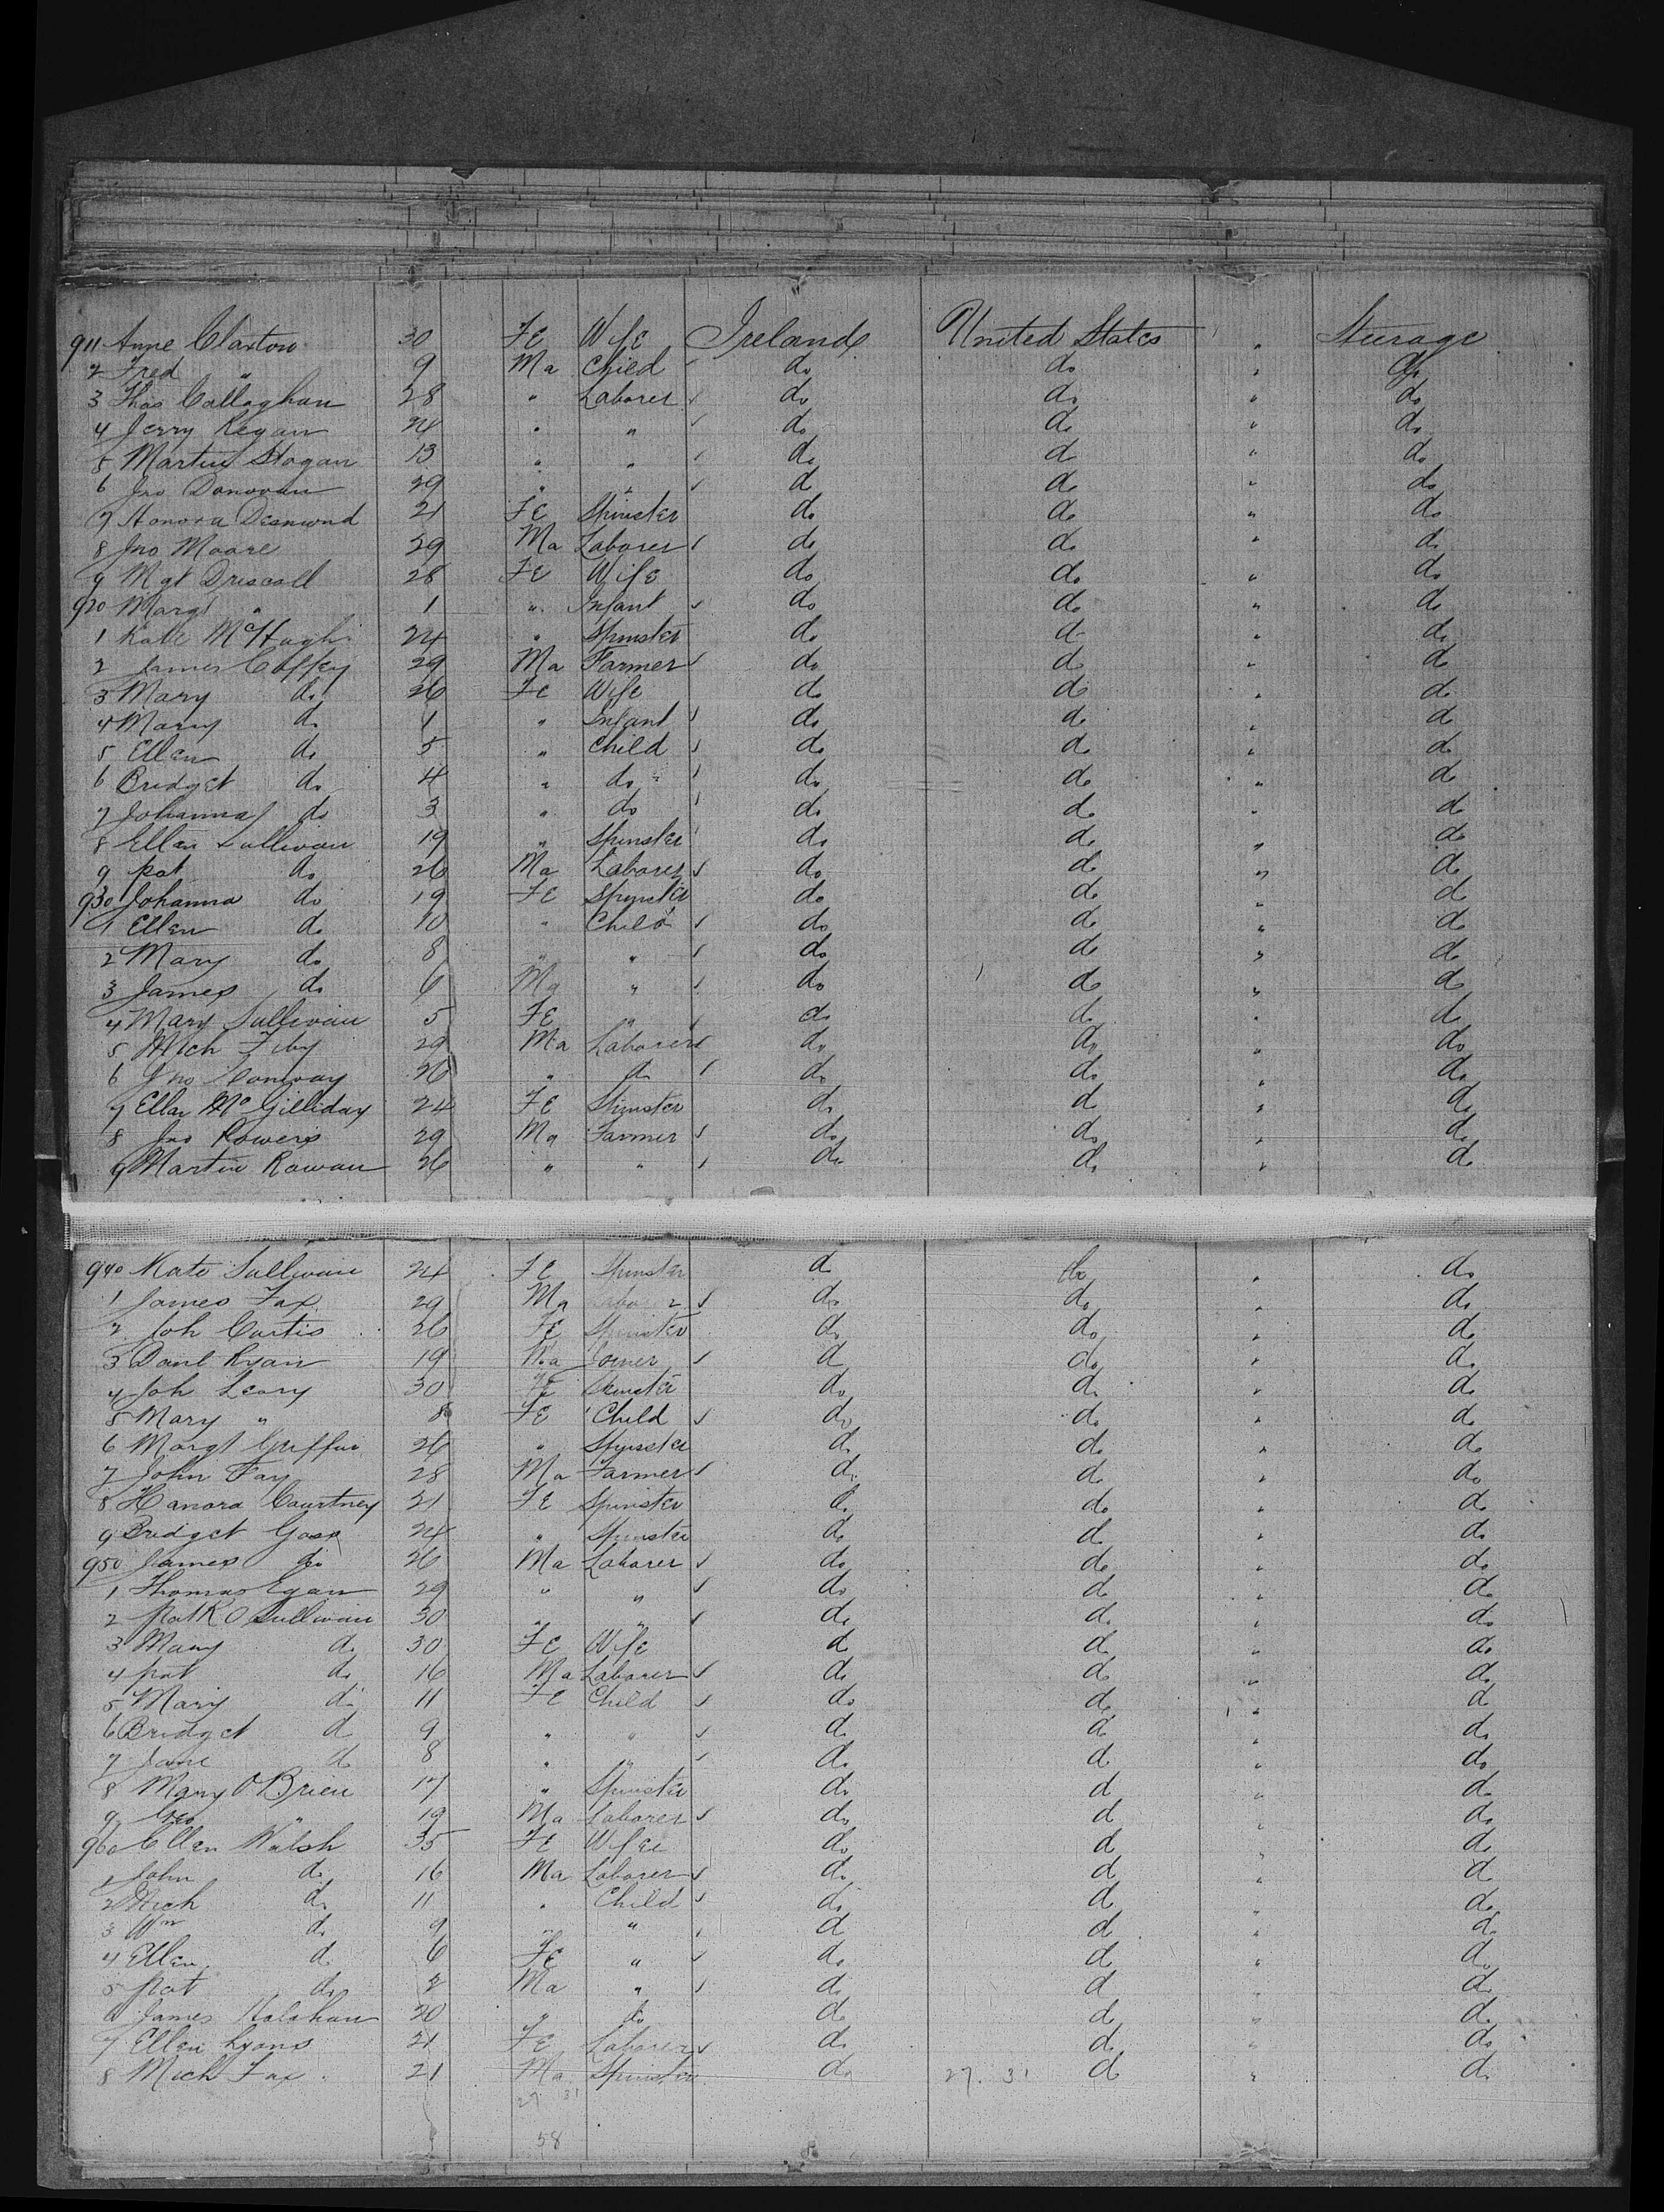 911 Anne Claxton 30 Fe Wife Ireland United States " Steerage
2 Fred " 9 Ma Child do do " do
3 Thos Callaghan 28 " Laborer do do " do
4 Jerry Regan 24 " " do do " do
5 Martin Hogan 13 " " do do " do
6 Jno Donovan 29 " " do do " do
7 Honora Desmond 21 Fe Spinster do do " do
8 Jno Moore 29 Ma Laborer do do " do
9 Mgt Driscoll 28 Fe Wife do do " do
920 Margt " 1 " Infant do do " do
1 Kate McHugh 24 " Spinster do do " do
2 James Coffey 29 Ma Farmer do do " do
3 Mary do 26 Fe Wife do do " do
4 Mary do 1 " Infant do do " do
5 Ellen do 5 " Child do do " do
6 Bridget do 4 " do do do " do
7 Johanna do 3 " do do do " do
8 Ellen Sullivan 19 " Spinster do do " do
9 pat do 26 Ma Laborer do do " do
930 Johanna do 19 Fe Spinster do do " do
1 Ellen do 10 " Child do do " do
2 Mary do 8 " " do do " do
3 James do 6 Ma " do do " do
4 Mary Sullivan 5 Fe " do do " do
5 Mich 29 Ma Laborer do do " do
6 Jno Conway 26 " do do do " do
7 Ellen McGilliday 24 Fe Spinster do do " do
8 Jno Powers 29 Ma Farmer do do " do
9 Martin Rowan 26 " " do do " do
940 Kate Sullivan 24 Fe Spinster do do " do
1 James Fax 29 Ma Laborer do do " do
2 Joh Curtis 26 Fe Spinster do do " do
3 Danl Ryan 19 Ma Joiner do do " do
4 Joh Leary 30 Fe Spinster do do " do
5 Mary " 8 Fe Child do do " do
6 Margt Griffin 26 " Spinster do do " do
7 John Fay 28 Ma Farmer do do " do
8 Hanora Courtney 21 Fe Spinster do do " do
9 Bridget Goss 24 " Spinster do do " do
950 James do 26 Ma Laborer do do " do
1 Thomas Egan 29 " " do do " do
2 Patk O Sullivan 30 " " do do " do
3 Mary do 30 Fe Wife do do " do
4 pat do 16 Ma Laborer do do " do
5 Mary do 11 Fe Child do do " do
6 Bridget do 9 " " do do " do
7 Jane do 8 " " do do " do
8 Mary O'Brien 17 " Spinster do do " do
9 Geo " 19 Ma Laborer do do " do
960 Ellen Walsh 35 Fe Wife do do " do
1 John do 16 Ma Laborer do do " do
2 Mich do 11 " Child do do " do
3 Wm do 9 " " do do " do
4 Ellen do 6 Fe " do do " do
5 Pat do 2 Ma " do do " do
6 James 20 " do do do " do
7 Ellen Lyons 21 Fe Laborer do do " do
8 Mich Fax 21 Ma Spinster do 27. 31 do " do
27 31
58